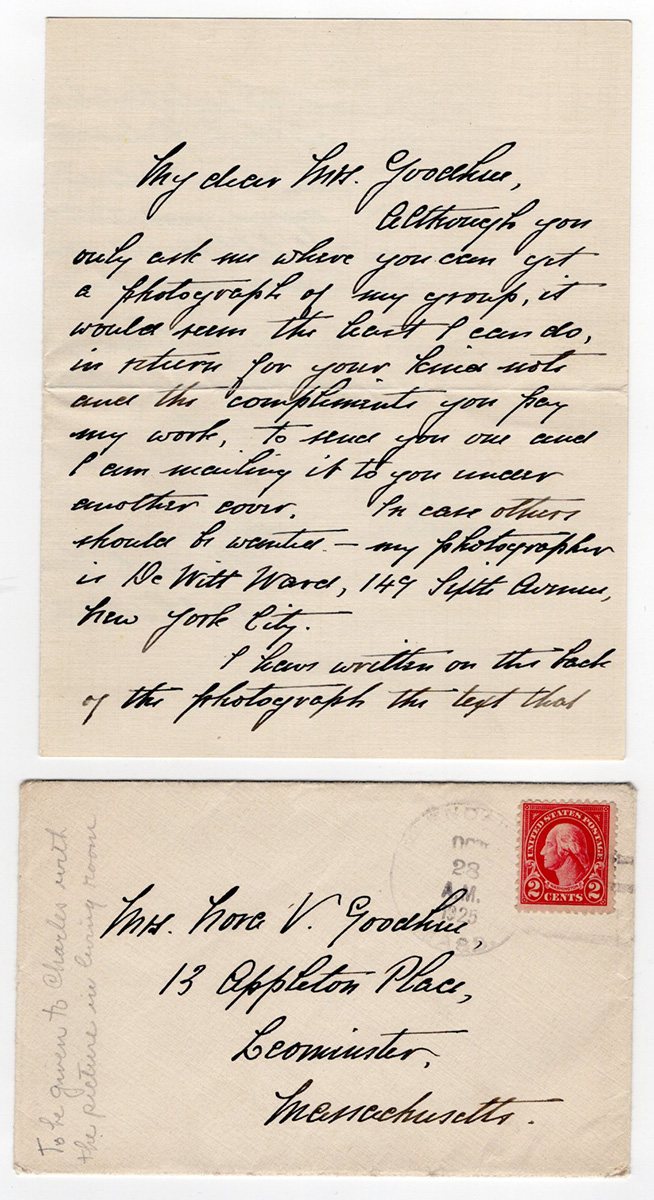 My dear Mrs. Goodhue,
Although you
only ask me where you can get
a photograph of my group, it
would seem the least I can do,
in return for your kind note
and the compliments you pay
my work, to send you one and
I am mailing it to you under
another cover. In case others
should be wanted — my photographer
is De Witt Ward, 149 Sixth Avenue,
New York City.
I have written on the back
of the photograph the text that
OCT
28
A.M.
1925
UNITED STATES POSTAGE
WASHINGTON
2 CENTS 2
Mrs. Nora V. Goodhue,
13 Appleton Place,
Leominster,
Massachusetts.
To be given to Charles with
the picture in living room